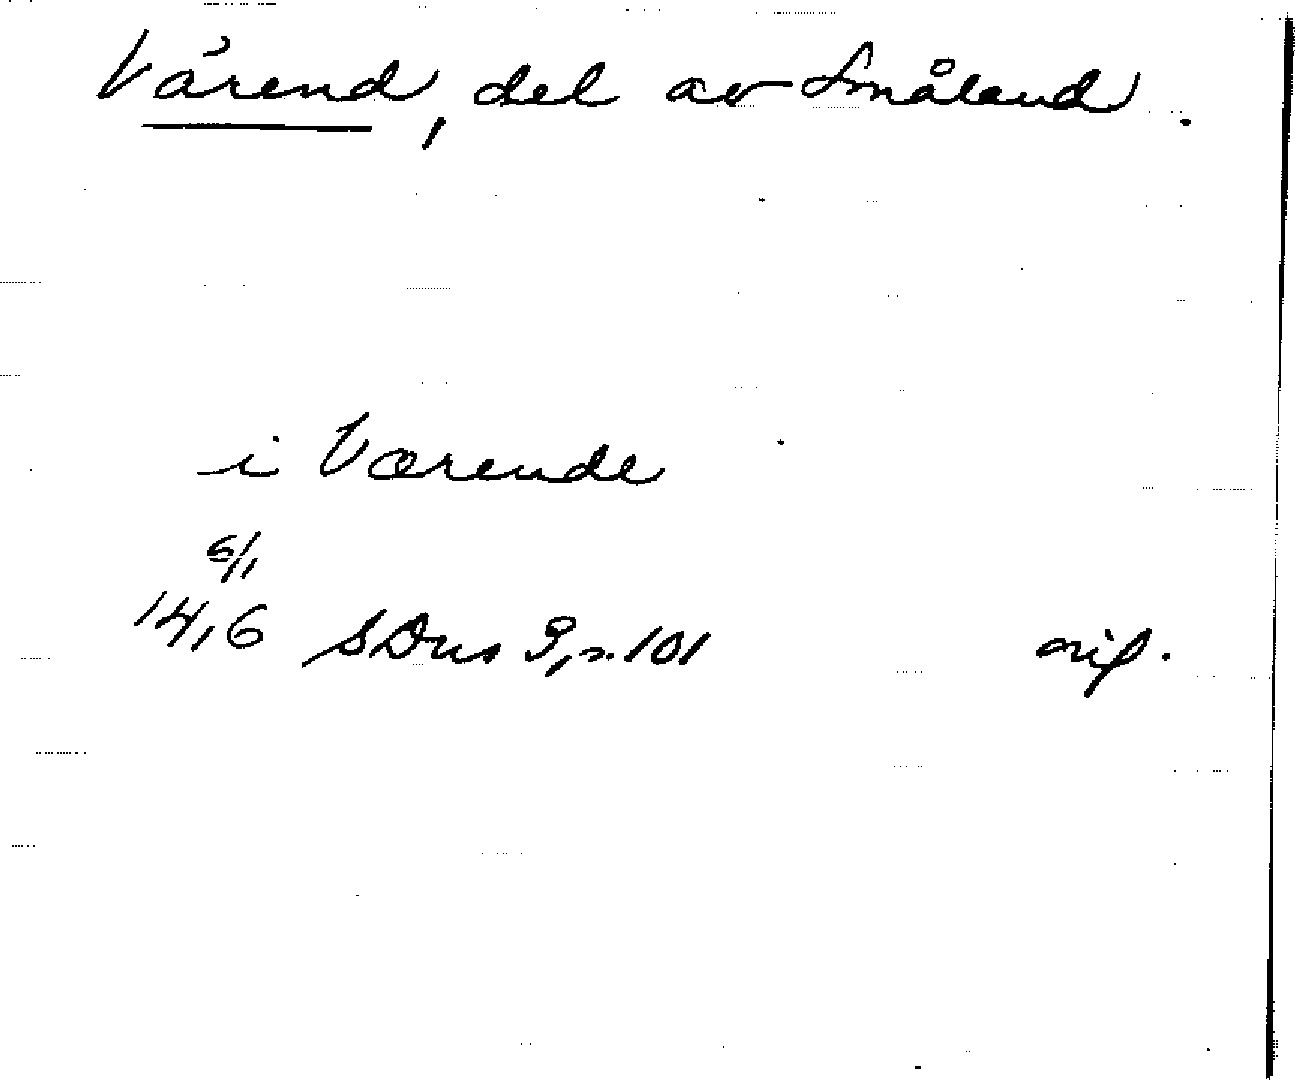 Värend, del av Småland.
i Værende
6/1
1416 SDns 3, s. 101 orig.